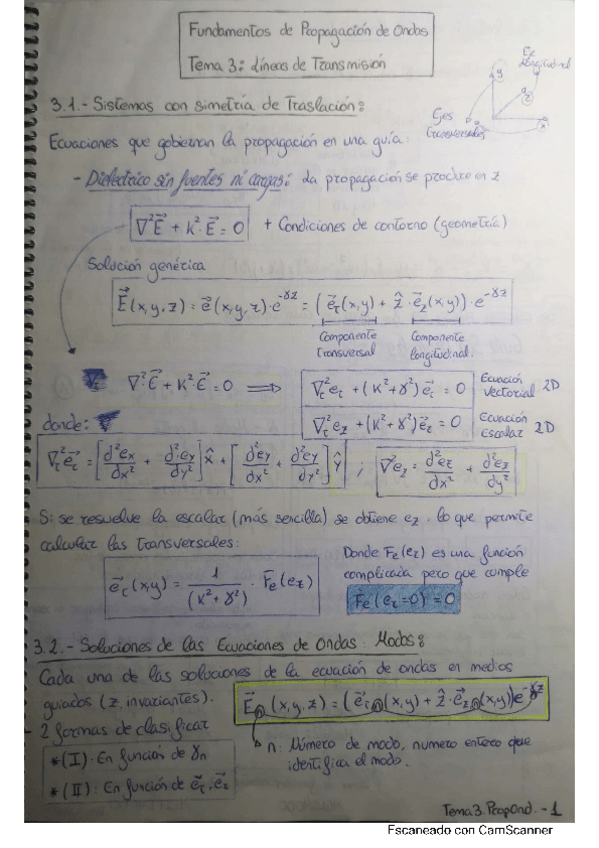 Fundamentos de Propagación de Ondas
Tema 3: Líneas de Transmisión
Ez
Longitudinal
y
z
x
Ges
Transversales
3.1.- Sistemas con simetría de Traslación:
Ecuaciones que gobiernan la propagación en una guía:
- Dieléctrico sin fuentes ni cargas: La propagación se produce en z
∇²E⃗ + K²·E⃗ = 0 + Condiciones de contorno (geometría)
Solución genérica
E⃗(x,y,z) = e⃗(x,y,z)·e^-γz = (e⃗t(x,y) + ẑ·e⃗z(x,y))·e^-γz
Componente transversal
Componente longitudinal.
∇²E⃗ + K²·E⃗ = 0 ⟹ ∇t²et + (K²+γ²)e⃗t = 0 Ecuación vectorial 2D
donde: ∇t²ez + (K²+γ²)e⃗z = 0 Ecuación Escalar 2D
∇t²e⃗t = [d²ex/dx² + d²ey/dy²] x̂ + [d²ey/dx² + d²ey/dy²] ŷ ; ∇²ez = d²ez/dx² + d²ez/dy²
Si se resuelve la escalar (más sencilla) se obtiene ez, lo que permite
calcular las transversales:
e⃗t(x,y) = 1/(K²+γ²) · F⃗e(ez)
Donde Fe(ez) es una función
complicada pero que cumple
F⃗e(ez=0) = 0
3.2.- Soluciones de las Ecuaciones de Ondas: Modos:
Cada una de las soluciones de la ecuación de ondas en medios
guiados (z, invariantes). E⃗n(x,y,z) = (e⃗tn(x,y) + ẑ·e⃗zn(x,y))e^-γz
- 2 formas de clasificar
n: Número de modo, numero entero que
identifica el modo.
*(I): En función de γn
*(II): En función de e⃗t, e⃗z
Tema 3. PropOnd. - 1
Escaneado con CamScanner